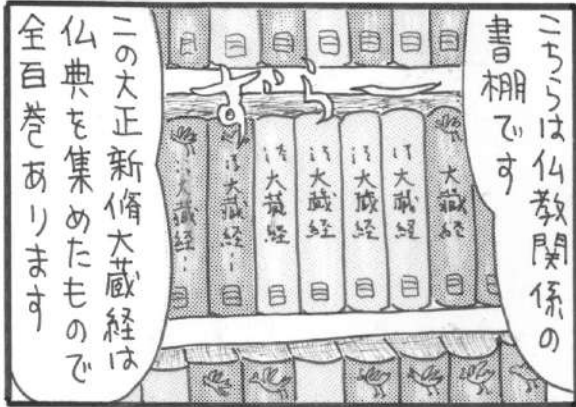 こちらは仏教関係の
書棚です
ずらー
大蔵経
大蔵経
大蔵経
大蔵経
大蔵経
大蔵経
大蔵経
この大正新脩大蔵経は
仏典を集めたもので
全百巻あります